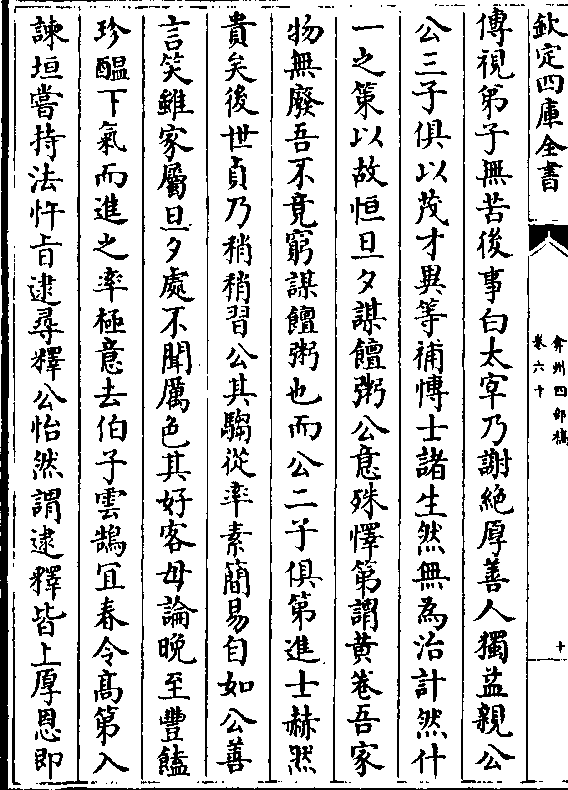 欽定四庫全書
弇州四部稿
卷六十
十
傅視弟子無苦後事白太宰乃謝絶厚善人獨益親公
公三子俱以茂才異等補博士諸生然無為治計然什
一之策以故恒旦夕謀饘粥公意殊懌第謂黄卷吾家
物無廢吾不竟窮謀饘粥也而公二子俱第進士赫然
貴矣後世貞乃稍稍習公其騶從率素簡易自如公善
言笑雖家屬旦夕處不聞厲色其好客毋論晚至豐饁
珍醖下氣而進之率極意去伯子雲鵠冝春令髙第入
諫垣嘗持法忤㫖逮尋釋公怡然謂逮釋皆上厚恩即